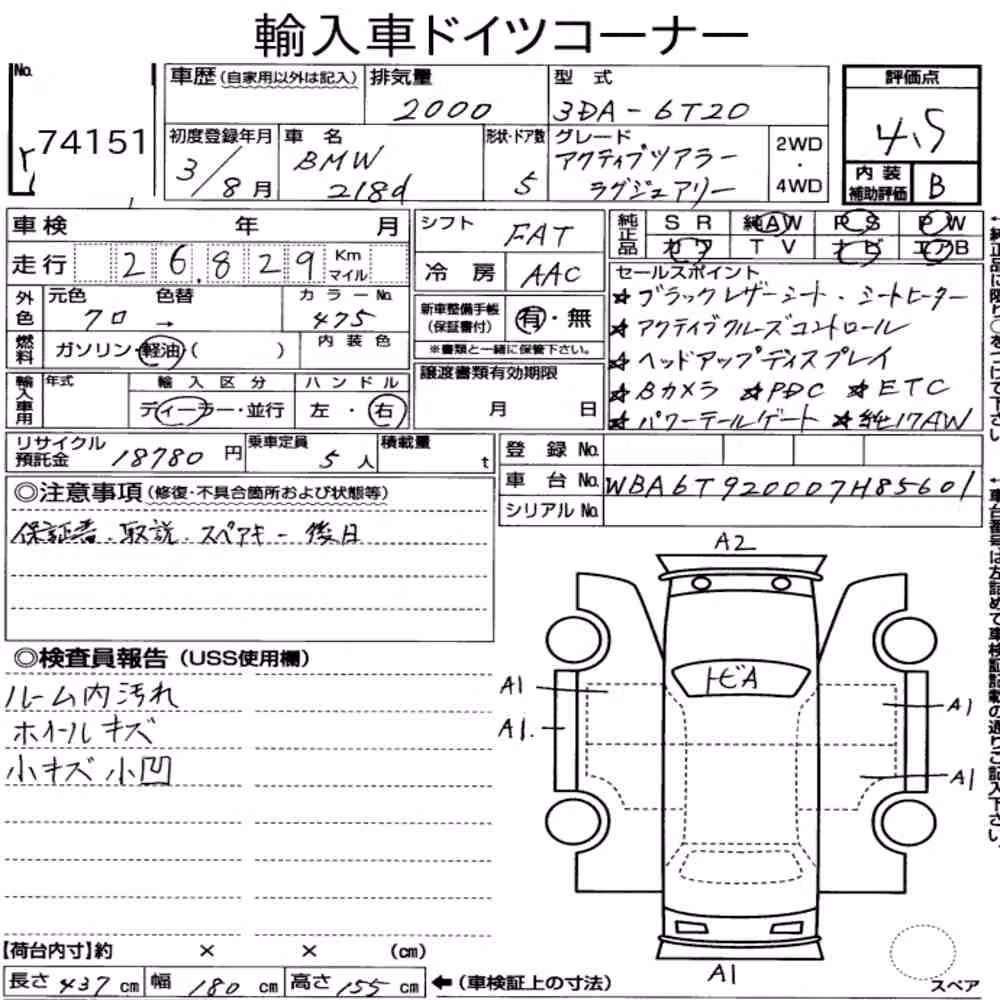 輸入車ドイツコーナー
No. 74151
車歴(自家用以外は記入) 排気量 2000 型式 3DA-6T20
評価点 4.5
初度登録年月 3/8月 車名 BMW 218d 形状・ドア数 5 グレード アクティブツアラー ラグジュアリー 2WD・4WD
内装補助評価 B
車検 年 月
走行 26,829 Km マイル
シフト FAT
冷房 AAC
純正品 SR 純AW PS PW
カワ TV ナビ エアB
外色 元色 クロ → 色替 カラーNo. 475
燃料 ガソリン・軽油・( ) 内装色
新車整備手帳(保証書付) 有・無
※書類と一緒に保管下さい。
セールスポイント
☆ブラックレザーシート・シートヒーター
☆アクティブクルーズコントロール
☆ヘッドアップディスプレイ
☆Bカメラ ☆PDC ☆ETC
☆パワーテールゲート ☆純17AW
輸入車用 年式 輸入区分 ディーラー・並行 ハンドル 左・右
譲渡書類有効期限 月 日
リサイクル預託金 18780円 乗車定員 5人 積載量 t
登録No.
車台No. WBA6T920007H85601
シリアルNo.
◎注意事項(修復・不具合箇所および状態等)
保証書、取説、スペアキー後日
◎検査員報告(USS使用欄)
ルーム内汚れ
ホイールキズ
小キズ小凹
A2
トビA
A1
A1
A1
A1
A1
スペア
【荷台内寸】約 × × (cm)
長さ 437 cm 幅 180 cm 高さ 155 cm ←(車検証上の寸法)
↑純正品に限り○をつけて下さい。
↑車台番号は左詰めで車検証記載の通りご記入下さい。